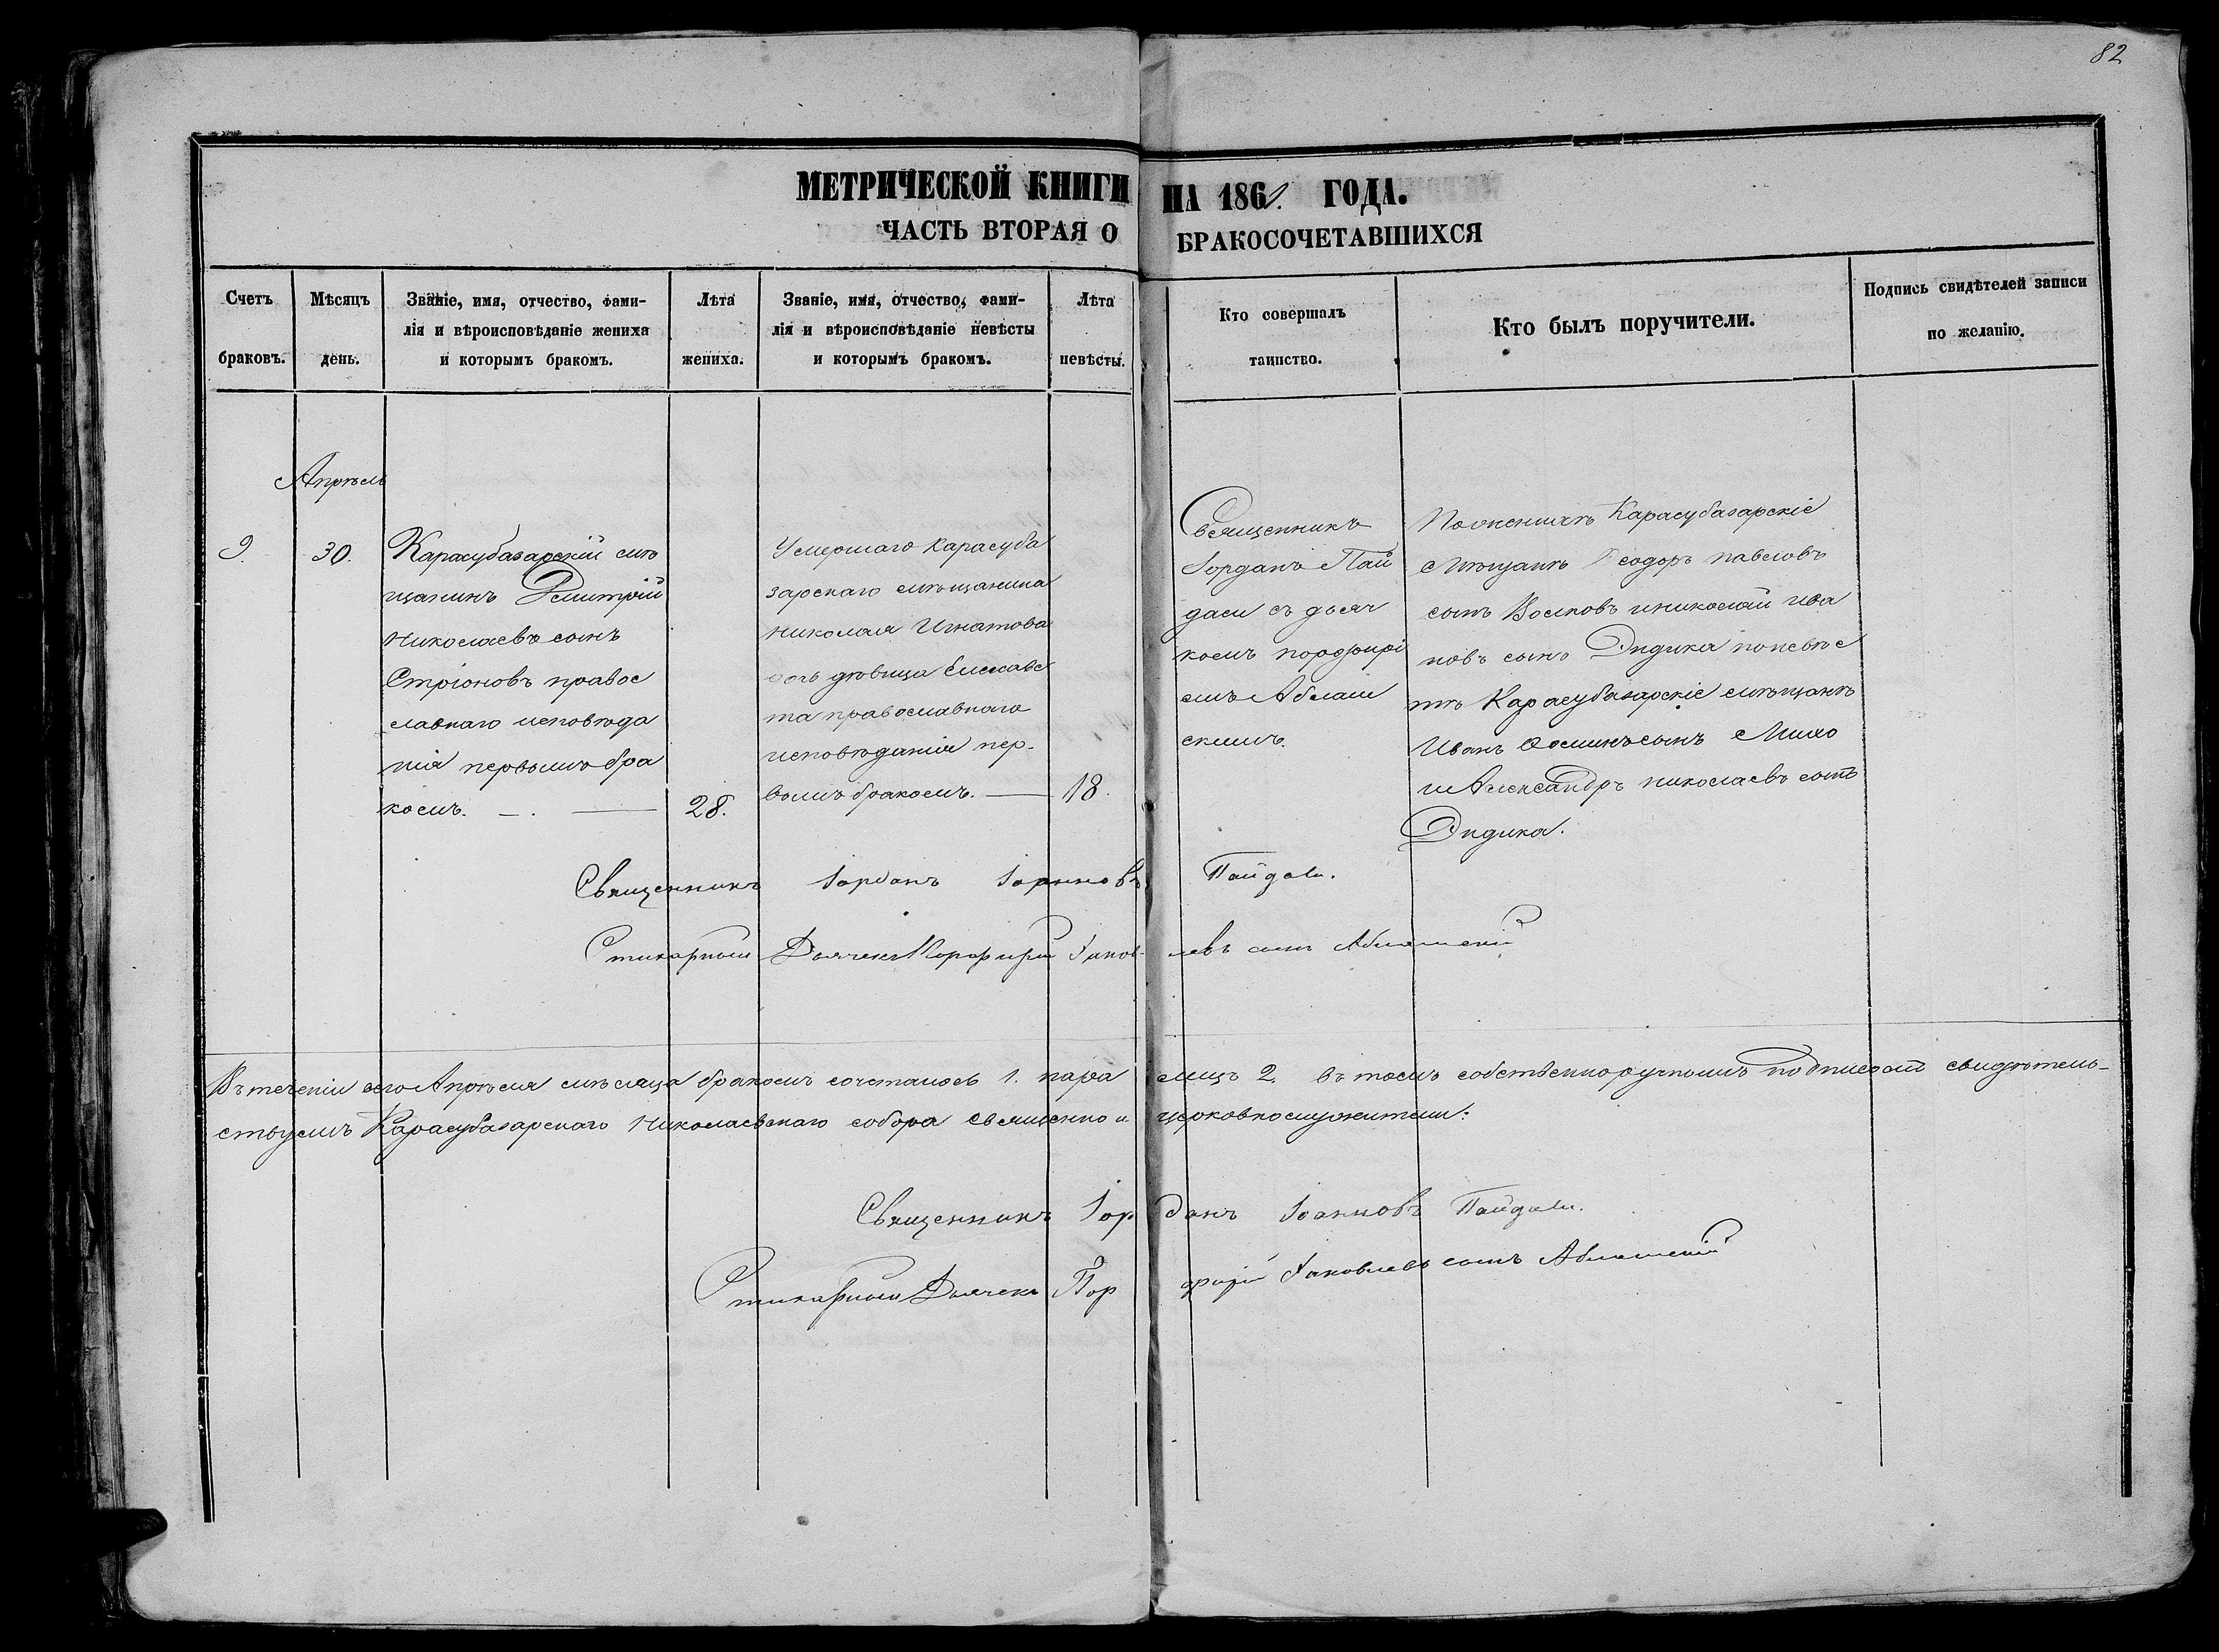 82
МЕТРИЧЕСКОЙ КНИГИ НА 1861 ГОДА.
ЧАСТЬ ВТОРАЯ О БРАКОСОЧЕТАВШИХСЯ
Счетъ браковъ.
Мѣсяцъ день.
Званіе, имя, отчество, фами-
лія и вѣроисповѣданіе жениха
и которымъ бракомъ.
Лѣта жениха.
Званіе, имя, отчество, фами-
лія и вѣроисповѣданіе невѣсты
и которымъ бракомъ.
Лѣта невѣсты.
Кто совершалъ
таинство.
Кто былъ поручители.
Подпись свидѣтелей записи
по желанію.
Апрѣль
9.
30.
Карасубазарскій мѣ
щанинъ Дмитрій
Николаевъ сынъ
Стріоновъ правос
лавнаго исповѣда
нія первымъ бра
комъ.
28.
Умершаго Карасуба
зарскаго мѣщанина
Николая Игнатова
дочь дѣвица Елисаве
та православнаго
исповѣданія пер-
вымъ бракомъ.
18.
Священникъ
Іорданъ Пай
дали съ дьяч
комъ порфирі
емъ Аблаш
скимъ.
По женихѣ Карасубазарскіе
Мѣщане Ѳеодоръ павловъ
сынъ Волковъ и николай ива
новъ сынъ Дидика по невѣс
тѣ Карасубазарскіе мѣщанѣ
Иванъ сынъ
и Александръ николаевъ сынъ
Дидика.
Священникъ Іорданъ Іоанновъ Пайдали.
Стихарный Дьячекъ Порфирій Іаковлевъ сынъ Аблашскій
Въ теченіи сего Апрѣля мѣсяца бракомъ сочеталось 1. пара лицъ 2. въ томъ собственноручнымъ подписомъ свидѣтель-
ствуемъ Карасубазарскаго Николаевскаго собора священно и церковнослужители:
Священникъ Іорданъ Іоанновъ Пайдали.
Стихарный Дьячекъ Порфирій Іаковлевъ сынъ Аблашскій